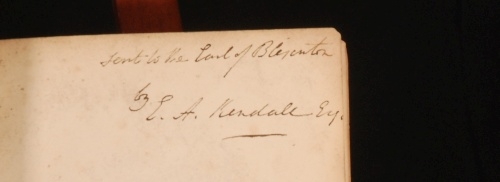 sent to the Earl of Blesinton
by E. A. Kendall Esq.